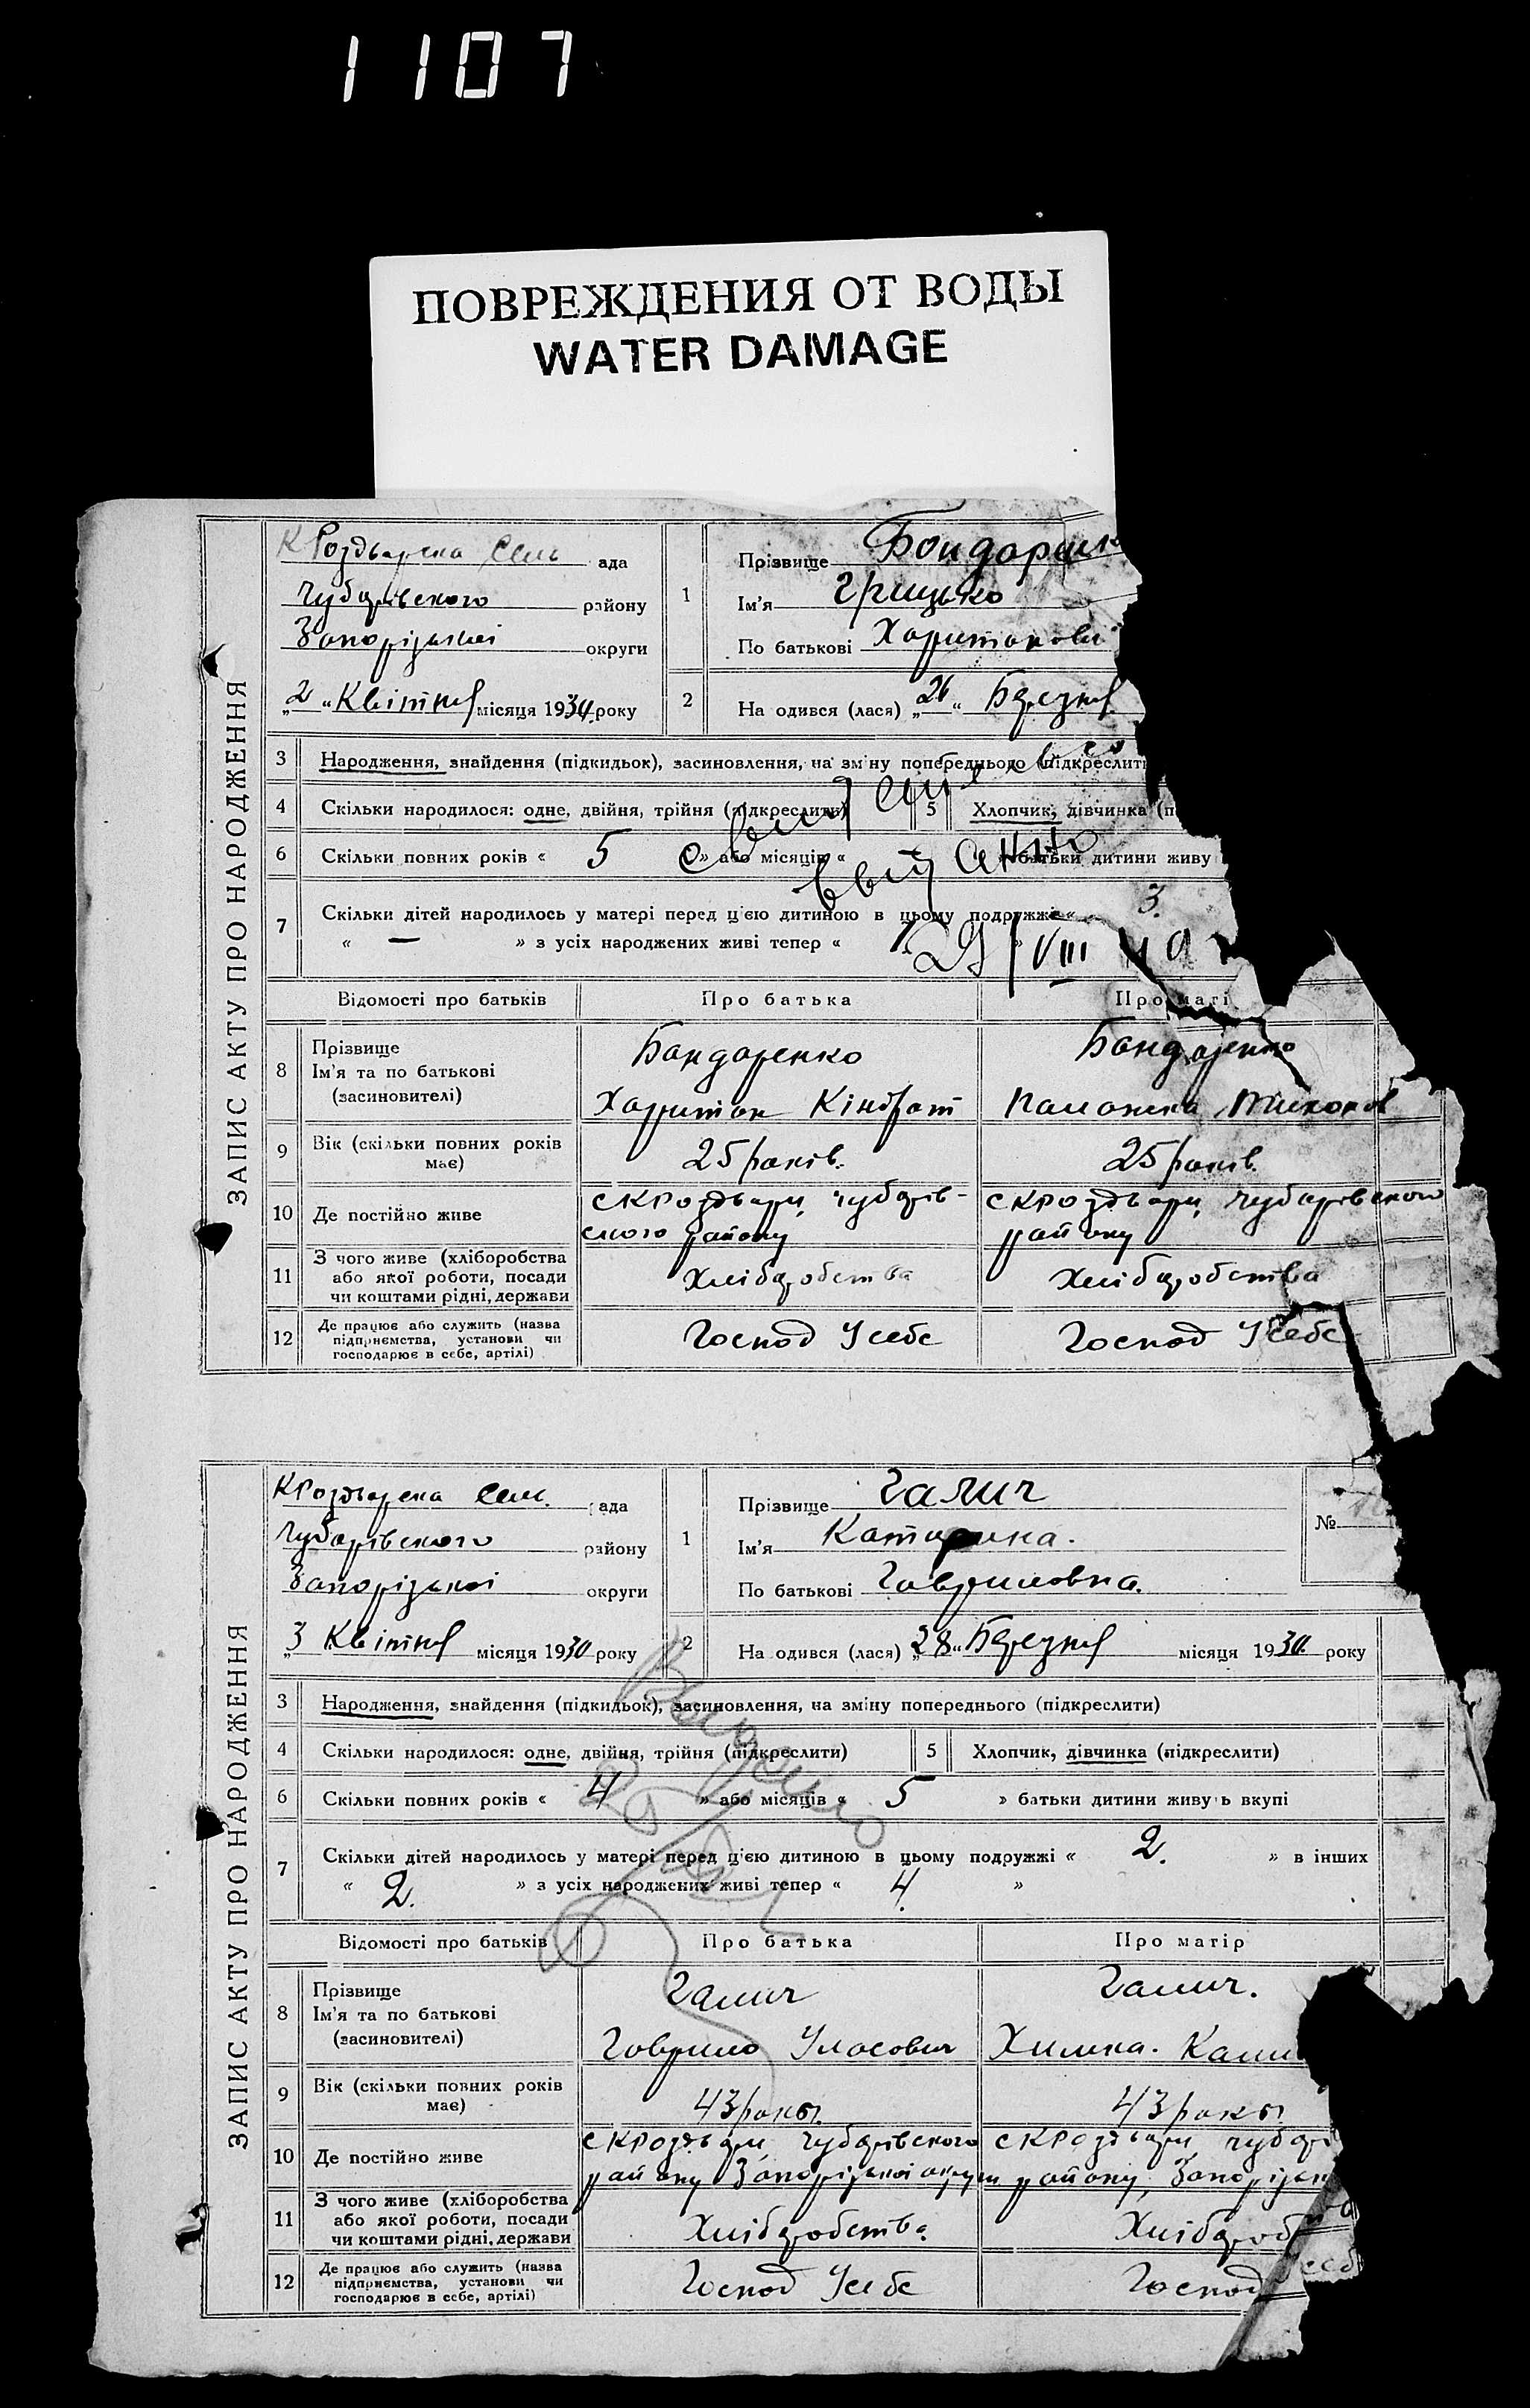 1107
ПОВРЕЖДЕНИЯ ОТ ВОДЫ
WATER DAMAGE
ЗАПИС АКТУ ПРО НАРОДЖЕННЯ
ада
Чубарівського району
Запорізької округи
„2“ Квітня місяця 1930 року
1
Прізвище
Ім'я Грицько
По батькові
2
На одився (лася) „26“ Березня
3 Народження, знайдення (підкидьок), засиновлення, на зміну попереднього
4 Скільки народилося: одне, двійня, трійня (підкреслити) 5 Хлопчик, дівчинка
6 Скільки повних років « 5 » або місяців « батьки дитини живу
7 Скільки дітей народилось у матері перед цією дитиною в цьому подружжі « 3.
« — » з усіх народжених живі тепер «
29/VIII
Відомості про батьків Про батька Про маті
8 Прізвище
Ім'я та по батькові
(засиновителі)
Бондаренко Бондаренко
Харитон Кіндрат
9 Вік (скільки повних років має) 25 років. 25 років.
10 Де постійно живе
чубарів-
ського району
чубарівського
району
11 З чого живе (хліборобства
або якої роботи, посади
чи коштами рідні, держави
Хліборобства Хліборобства
12 Де працює або служить (назва
підприємства, установи чи
господарює в себе, артілі)
Господ Усебе Господ Усебе
ЗАПИС АКТУ ПРО НАРОДЖЕННЯ
ада
Чубарівського району
Запорізької округи
„3 Квітня місяця 1930 року
1
Прізвище Галич
Ім'я Катерина.
По батькові Гавриловна.
№
2
На одився (лася) „28“ Березня місяця 1930 року
3 Народження, знайдення (підкидьок), засиновлення, на зміну попереднього (підкреслити)
4 Скільки народилося: одне, двійня, трійня (підкреслити) 5 Хлопчик, дівчинка (підкреслити)
6 Скільки повних років « 4 » або місяців « 5 » батьки дитини живуть вкупі
7 Скільки дітей народилось у матері перед цією дитиною в цьому подружжі « 2. » в інших
« 2. » з усіх народжених живі тепер « 4. »
Відомості про батьків Про батька Про матір
8 Прізвище
Ім'я та по батькові
(засиновителі)
Галич Галич.
Гаврило Уласович Химка.
9 Вік (скільки повних років має) 43 роки. 43 роки
10 Де постійно живе
Чубарівського
району Запорізької округи
району, Запорізьк
11 З чого живе (хліборобства
або якої роботи, посади
чи коштами рідні, держави
Хліборобства. Хлібороб
12 Де працює або служить (назва
підприємства, установи чи
господарює в себе, артілі)
Господ Усебе Господ